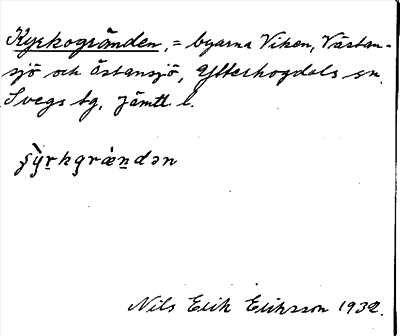 Kyrkogränden, = byarna Viken, Västan-
sjö och Östansjö, Ytterhogdals sn.
Svegs tg, Jämtl. l.
Nils Erik Eriksson 1932.